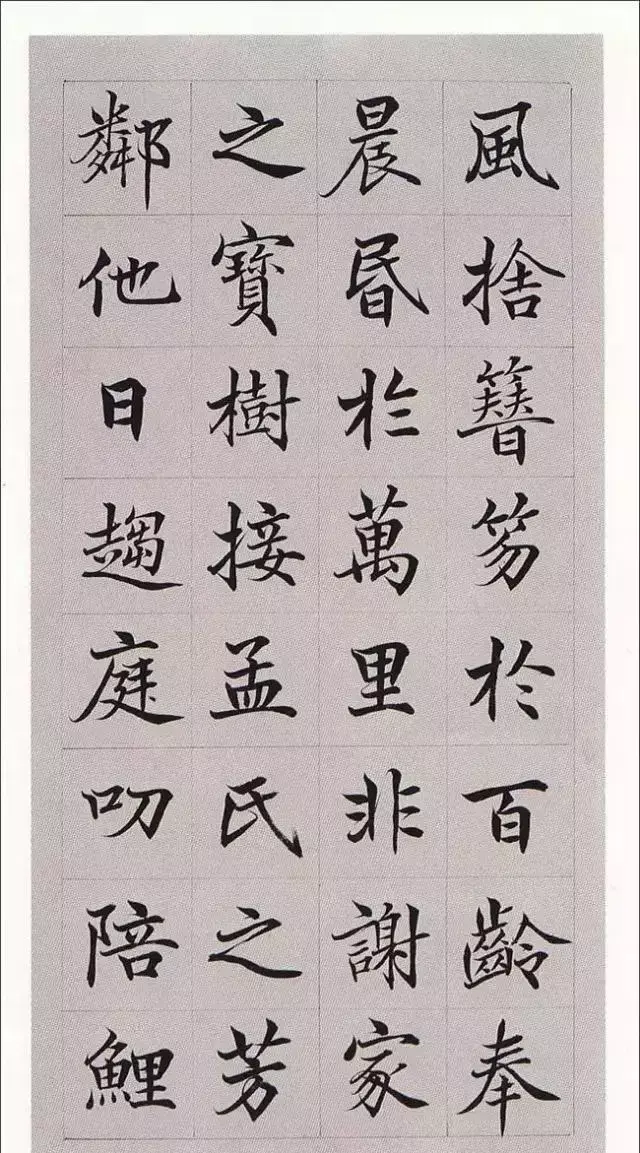 風捨簪笏於百齡奉
晨昏於萬里非謝家
之寶樹接孟氏之芳
鄰他日趨庭叨陪鯉